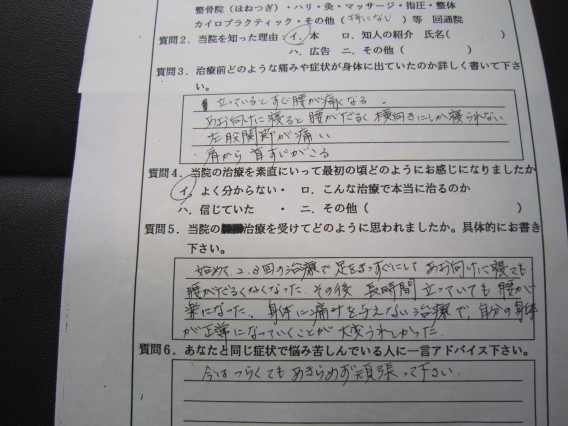 整骨院（ほねつぎ）・ハリ・灸・マッサージ・指圧・整体
カイロプラクティック・その他（特になし）等　回通院
質問２．当院を知った理由：イ．本　ロ．知人の紹介　氏名（　　　）
ハ．広告　ニ．その他（　　　　）
質問３．治療前どのような痛みや症状が身体に出ていたのか詳しく書いて下さ
い。
立っているとすぐ腰が痛くなる。
あお向けに寝ると腰がだるく横向きにしか寝られない
左股関節が痛い
肩から首すじがこる
質問４．当院の治療を素直にいって最初の頃どのようにお感じになりましたか
イ．よく分からない・　ロ．こんな治療で本当に治るのか
ハ．信じていた　・　ニ．その他（　　　　　　　　　）
質問５．当院の治療を受けてどのように思われましたか。具体的にお書き
下さい。
始めて2.3回の治療で足をまっすぐにして あお向けに寝ても
腰がだるくなくなった。その後 長時間立っていても腰が
楽になった。身体に痛みを与えない治療で、自分の身体
が正常になっていくことが 大変うれしかった。
質問６．あなたと同じ症状で悩み苦しんでいる人に一言アドバイス下さい。
今はつらくてもあきらめず頑張って下さい。